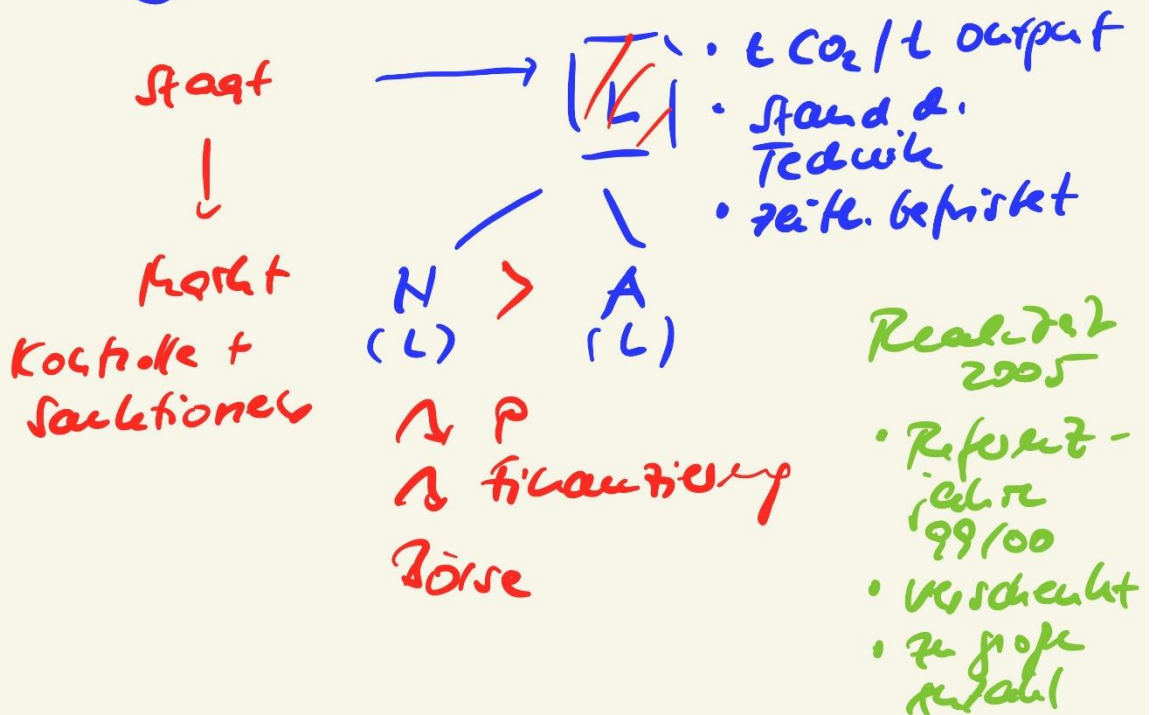 Staat
L
• t CO₂/t Output
• Stand d.
Technik
• zeitl. befristet
Markt
N > A
(L) (L)
Kontrolle +
Sanktionen
P
Finanzierung
Börse
2005
• Referenz-
jahre
99/00
• verschenkt
• zu große
Anzahl